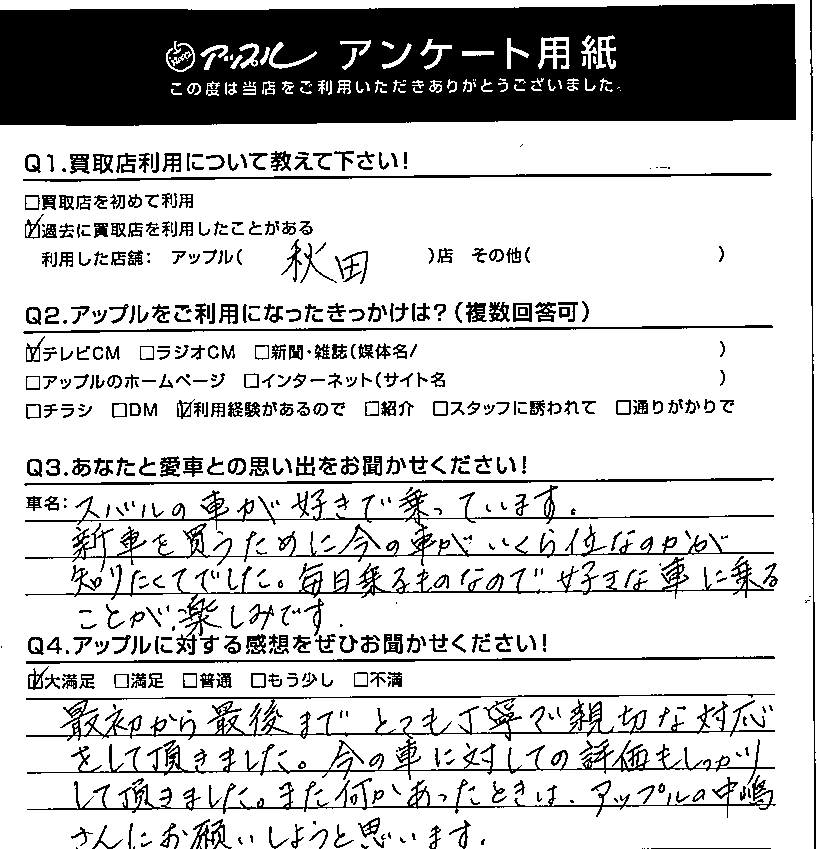 アップル アンケート用紙
この度は当店をご利用いただきありがとうございました。
Q1.買取店利用について教えて下さい!
□買取店を初めて利用
☑過去に買取店を利用したことがある
利用した店舗: アップル( 秋田 )店 その他( )
Q2.アップルをご利用になったきっかけは?(複数回答可)
☑テレビCM □ラジオCM □新聞・雑誌(媒体名/ )
□アップルのホームページ □インターネット(サイト名 )
□チラシ □DM ☑利用経験があるので □紹介 □スタッフに誘われて □通りがかりで
Q3.あなたと愛車との思い出をお聞かせください!
車名: スバルの車が好きで乗っています。
新車を買うために今の車がいくら位なのかが
知りたくてでした。毎日乗るものなので好きな車に乗る
ことが楽しみです。
Q4.アップルに対する感想をぜひお聞かせください!
☑大満足 □満足 □普通 □もう少し □不満
最初から最後までとても丁寧で親切な対応
をして頂きました。今の車に対しての評価もしっかり
して頂きました。また何かあったときは、アップルの中嶋
さんにお願いしようと思います。